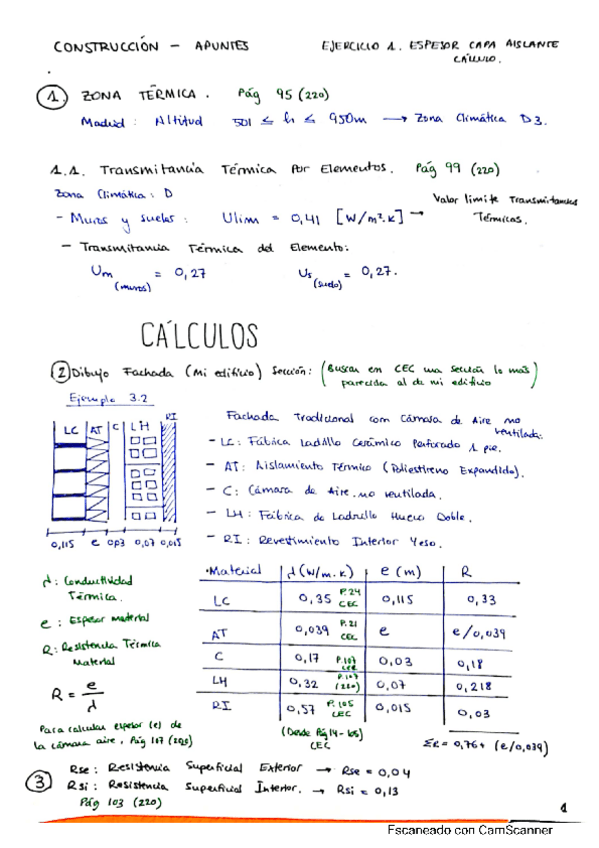 CONSTRUCCIÓN - APUNTES
EJERCICIO 1. ESPESOR CAPA AISLANTE
CÁLCULO.
1. ZONA TÉRMICA. Pág 95 (220)
Madrid: Altitud 501 ≤ h ≤ 950m → Zona Climática D3.
1.1. Transmitancia Térmica Por Elementos. Pág 99 (220)
Zona Climática: D
- Muros y suelos: Ulim = 0,41 [W/m².K] → Valor limite Transmitancias
Térmicas.
- Transmitancia Térmica del Elemento:
Um = 0,27 Us = 0,27.
(muros) (suelo)
CÁLCULOS
2 Dibujo Fachada (Mi edificio) Sección: (Buscar en CEC una sección lo más
parecida al de mi edificio)
Ejemplo 3.2
RI
LC AT C LH
0,115 e 0,03 0,07 0,015
Fachada Tradicional con Cámara de Aire no
ventilada:
- LC: Fábrica Ladrillo Cerámico Perforado 1 pie.
- AT: Aislamiento Térmico (Poliestireno Expandido).
- C: Cámara de Aire no ventilada.
- LH: Fábrica de Ladrillo Hueco Doble.
- RI: Revestimiento Interior Yeso.
λ: Conductividad
Térmica.
e: Espesor material
R: Resistencia Térmica
Material
R = e/λ
Para calcular espesor (e) de
la cámara aire, Pág 107 (205)
Material λ (W/m.K) e (m) R
LC 0,35 P.24 CEC 0,115 0,33
AT 0,039 P.21 CEC e e/0,039
C 0,17 P.107 0,03 0,18
LH 0,32 P.107 (220) 0,07 0,218
RI 0,57 P.105 CEC 0,015 0,03
(Desde Pág 14-105)
CEC
ΣR = 0,76 + (e/0,039)
3 Rse: Resistencia Superficial Exterior → Rse = 0,04
Rsi: Resistencia Superficial Interior. → Rsi = 0,13
Pág 103 (220)
1
Escaneado con CamScanner